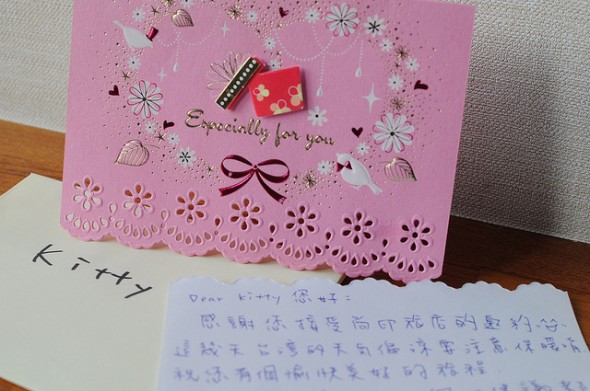 Especially for you
Kitty
Dear Kitty 您好:
感謝您接受尚印旅店的邀約
這幾天台灣的天氣偏涼要注意保暖唷
祝您有個愉快美好的旅程